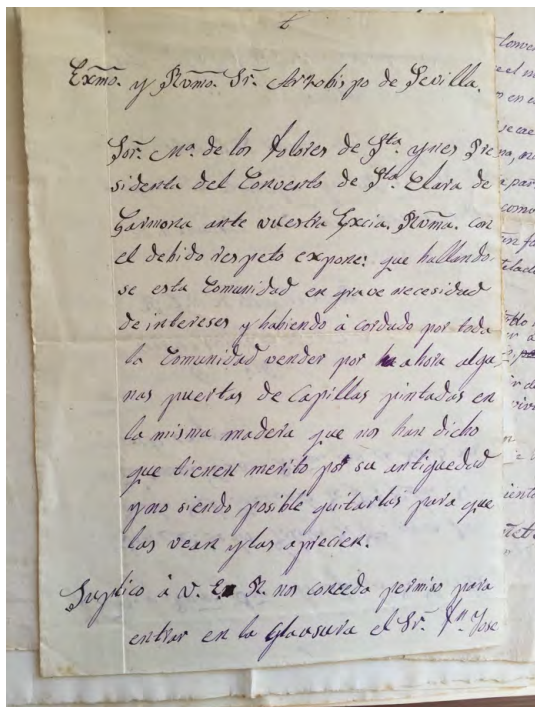 t
Exmo. y Rvmo. Sr. Arzobispo de Sevilla.
Sor. Mª. de los Dolores de Sta. ynes Pre
sidenta del Convento de Sta. Clara de
Carmona ante vuestra Excia. Rvma. con
el debido respeto expone: que hallando-
se esta Comunidad en grave necesidad
de intereses y habiendo à cordado por toda
la Comunidad vender por ahora algu
nas puertas de Capillas pintadas en
la misma madera que nos han dicho
que tienen merito por su antiguedad
y no siendo posible quitarlas para que
las vean y las aprecien.
Suplico à V. E. R. nos conceda permiso para
entrar en la Clausura el Sr. Dn. Jose